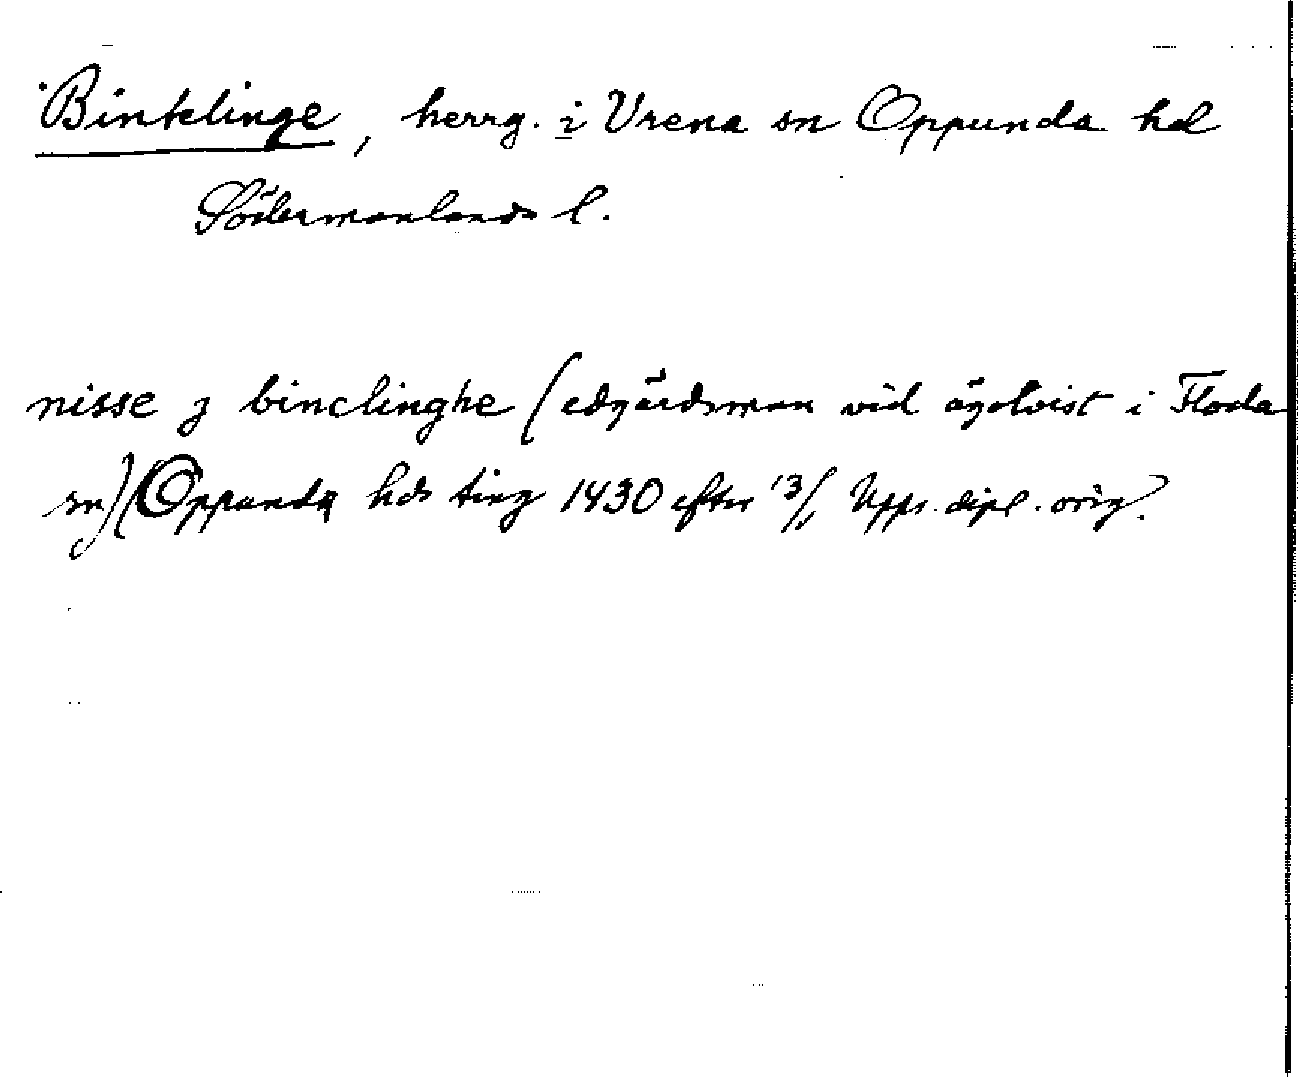 Binklinge, herrg. i Vrena sn Oppunda hd
Södermanlands l.
nisse j binclinghe (edgärdsman vid ägotvist i Floda
sn) (Oppunda hds ting 1430 efter 13/1 Upps. dipl. orig.